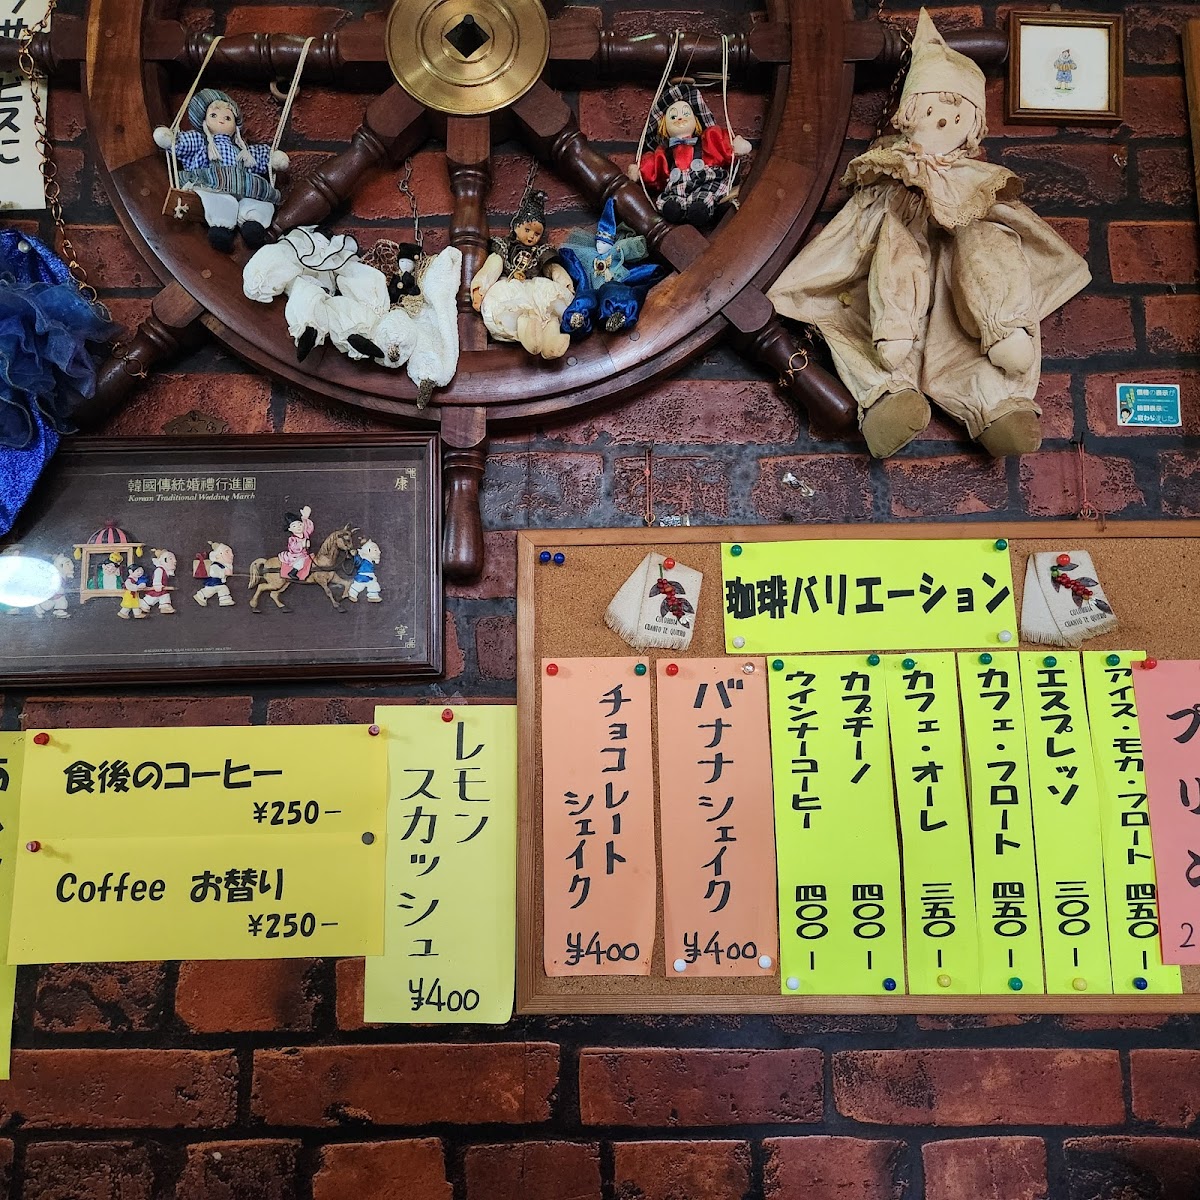 韓國傳統婚禮行進圖
Korean Traditional Wedding March
康
寧
価格の表示が
総額表示に
変わりました
食後のコーヒー
¥250−
Coffee お替り
¥250−
レモン
スカッシュ
¥400
珈琲バリエーション
COLOMBIA
CUANTO TE QUIERO
COLOMBIA
CUANTO TE QUIERO
チョコレート
シェイク
¥400
バナナシェイク
¥400
ウインナーコーヒー 四〇〇−
カプチーノ 四〇〇−
カフェ・オーレ 三五〇−
カフェ・フロート 四五〇−
エスプレッソ 三〇〇−
アイス・モカ・フロート 四五〇−
プリン
2